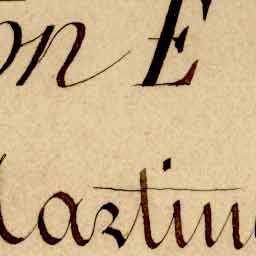 on E
artin